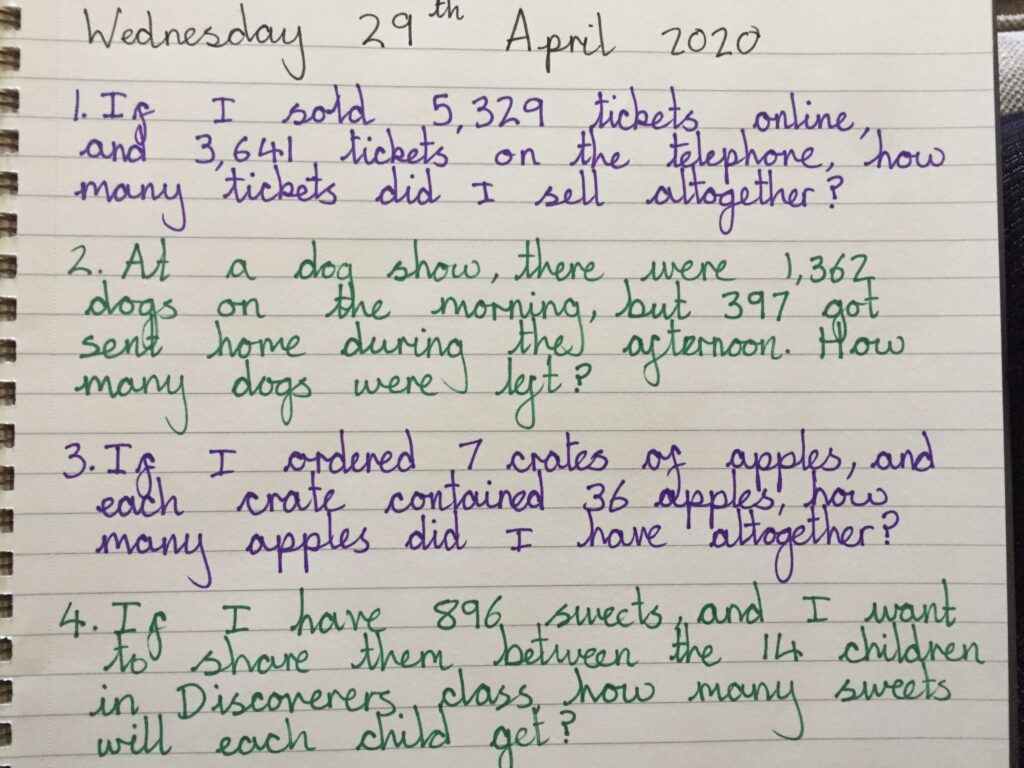 Wednesday 29th April 2020
1. If I sold 5,329 tickets online,
and 3,641 tickets on the telephone, how
many tickets did I sell altogether?
2. At a dog show, there were 1,362
dogs on the morning, but 397 got
sent home during the afternoon. How
many dogs were left?
3. If I ordered 7 crates of apples, and
each crate contained 36 apples, how
many apples did I have altogether?
4. If I have 896 sweets, and I want
to share them between the 14 children
in Discoverers class, how many sweets
will each child get?